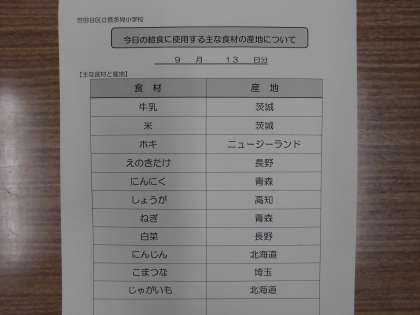 世田谷区立喜多見小学校
今日の給食に使用する主な食材の産地について
9 月 13 日分
【主な食材と産地】
食 材 産 地
牛乳 茨城
米 茨城
ホキ ニュージーランド
えのきたけ 長野
にんにく 青森
しょうが 高知
ねぎ 青森
白菜 長野
にんじん 北海道
こまつな 埼玉
じゃがいも 北海道